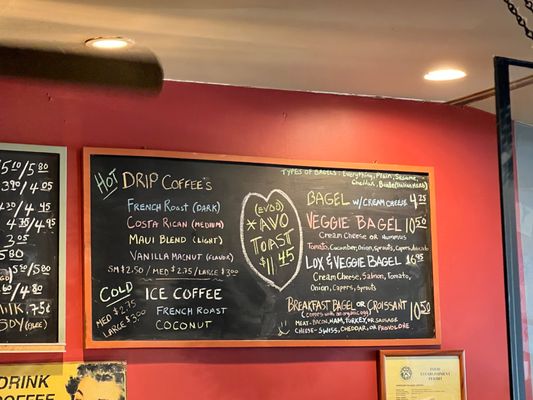 5.10/5.80
3.90/4.05
4.30/4.95
4.75/4.95
3.05
HOT DRIP COFFEE'S
FRENCH ROAST (DARK)
COSTA RICAN (MEDIUM)
MAUI BLEND (LIGHT)
VANILLA MACNUT (FLAVOR)
SM $2.50 / MED $2.75 / LARGE $3.00
COLD ICE COFFEE
MED $2.75
LARGE $3.00
FRENCH ROAST
COCONUT
(EVOO)
*AVO
TOAST
$11.45
TYPES OF BAGELS: Everything, Plain, Sesame,
Cheddar,
BAGEL W/CREAM CHEESE 4.25
VEGGIE BAGEL 10.50
CREAM CHEESE OR HUMMUS
Tomato, Cucumber, Onion, Sprouts, Capers,
LOX & VEGGIE BAGEL 16.95
Cream Cheese, Salmon, Tomato,
Onion, Capers, Sprouts
BREAKFAST BAGEL OR CROISSANT 10.50
(comes with an organic egg)
MEAT-BACON, HAM, TURKEY, OR SAUSAGE
CHEESE-SWISS, CHEDDAR, OR PROVOLONE
DRINK
COFFEE
FOOD
ESTABLISHMENT
PERMIT